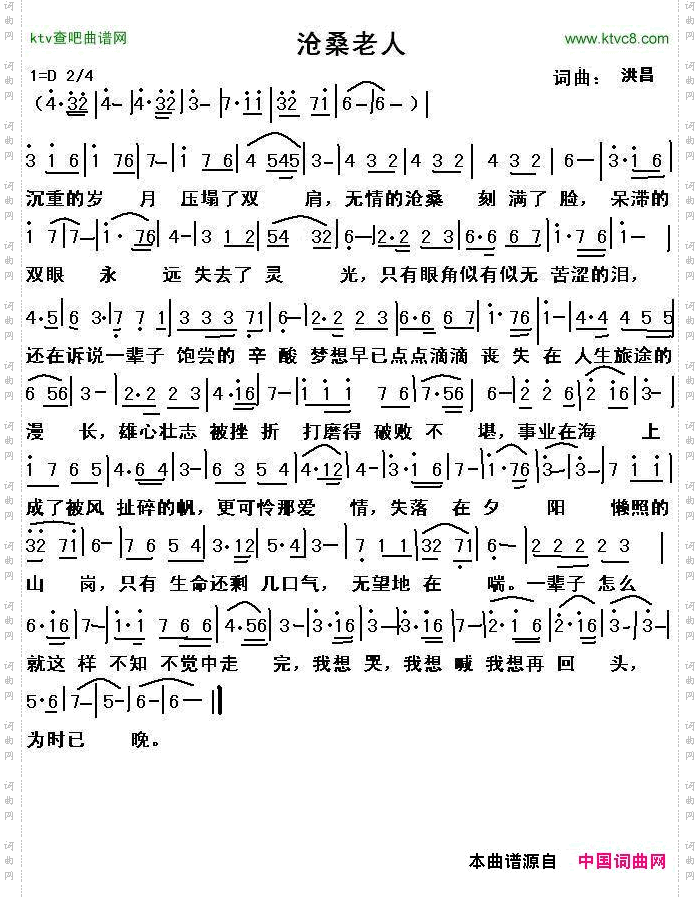 ktv查吧曲谱网
沧桑老人
www.ktvc8.com
1=D 2/4
词曲： 洪昌
（4·32|4-|4·32|3-|7·11|32 71|6-|6-）|
3 1 6|1 76|7-|1 7 6|4 545|3-|4 3 2|4 3 2|3 2|6-|3·1 6|
沉重的岁 月 压塌了双 肩，无情的沧桑 刻 满了 脸，呆滞的
1 7|7-|1· 76|4-|3 1 2|54 32|6-|2·2 2 3|6·6 6 7|1·7 6|1-|
双眼 永 远 失去了 灵 光，只有眼角似有似无 苦涩的泪，
4·5|6 3·|7 7 1|3 3 3 71|6-|2·2 2 3|6·6 6 7|1·76|1-|4·4 4 5 5|
还在诉说一辈子 饱尝的 辛 酸 梦想早已点点滴滴 丧 失 在 人生旅途的
6 56|3-|2·2 2 3|4·16|7-|1 1 1 7 6|7·56|6 2|2 16|3-|
漫 长，雄心壮志 被挫 折 打磨得 破败 不 堪，事业在海 上
1 7 6 5|4·6 4|3·6 3|5 4 5|4·12|3-|3·1 6|7-|1·76|3-|3-|7 1 1|
成了被风 扯碎的帆，更可怜那爱 情，失落 在 夕 阳 懒照的
32 71|6-|7 6 5 4|3·12|5·4|3-|7 1 1|32 71|6-|2 2 2 2 3|
山 岗，只有 生命还剩 几口气， 无望地 在 喘。一辈子 怎么
6·16|7-|1·1 1 7 6 6|4·56|3-|3·16|3-|3·16|7-|2·1 6|2·16|3-|
就这 样 不知 不觉中走 完，我想 哭，我想 喊 我想再 回 头，
5·6|7-|5-|6-|6-‖
为时已 晚。
本曲谱源自 中国词曲网
词曲网